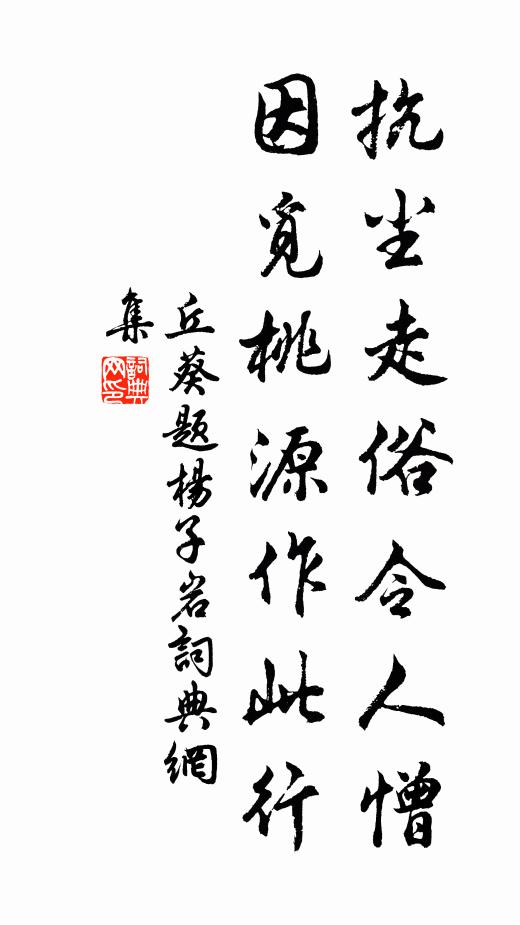 抗尘走俗令人憎
因觅桃源作此行
丘葵题楊子岩詞典網
集
詞典
网印